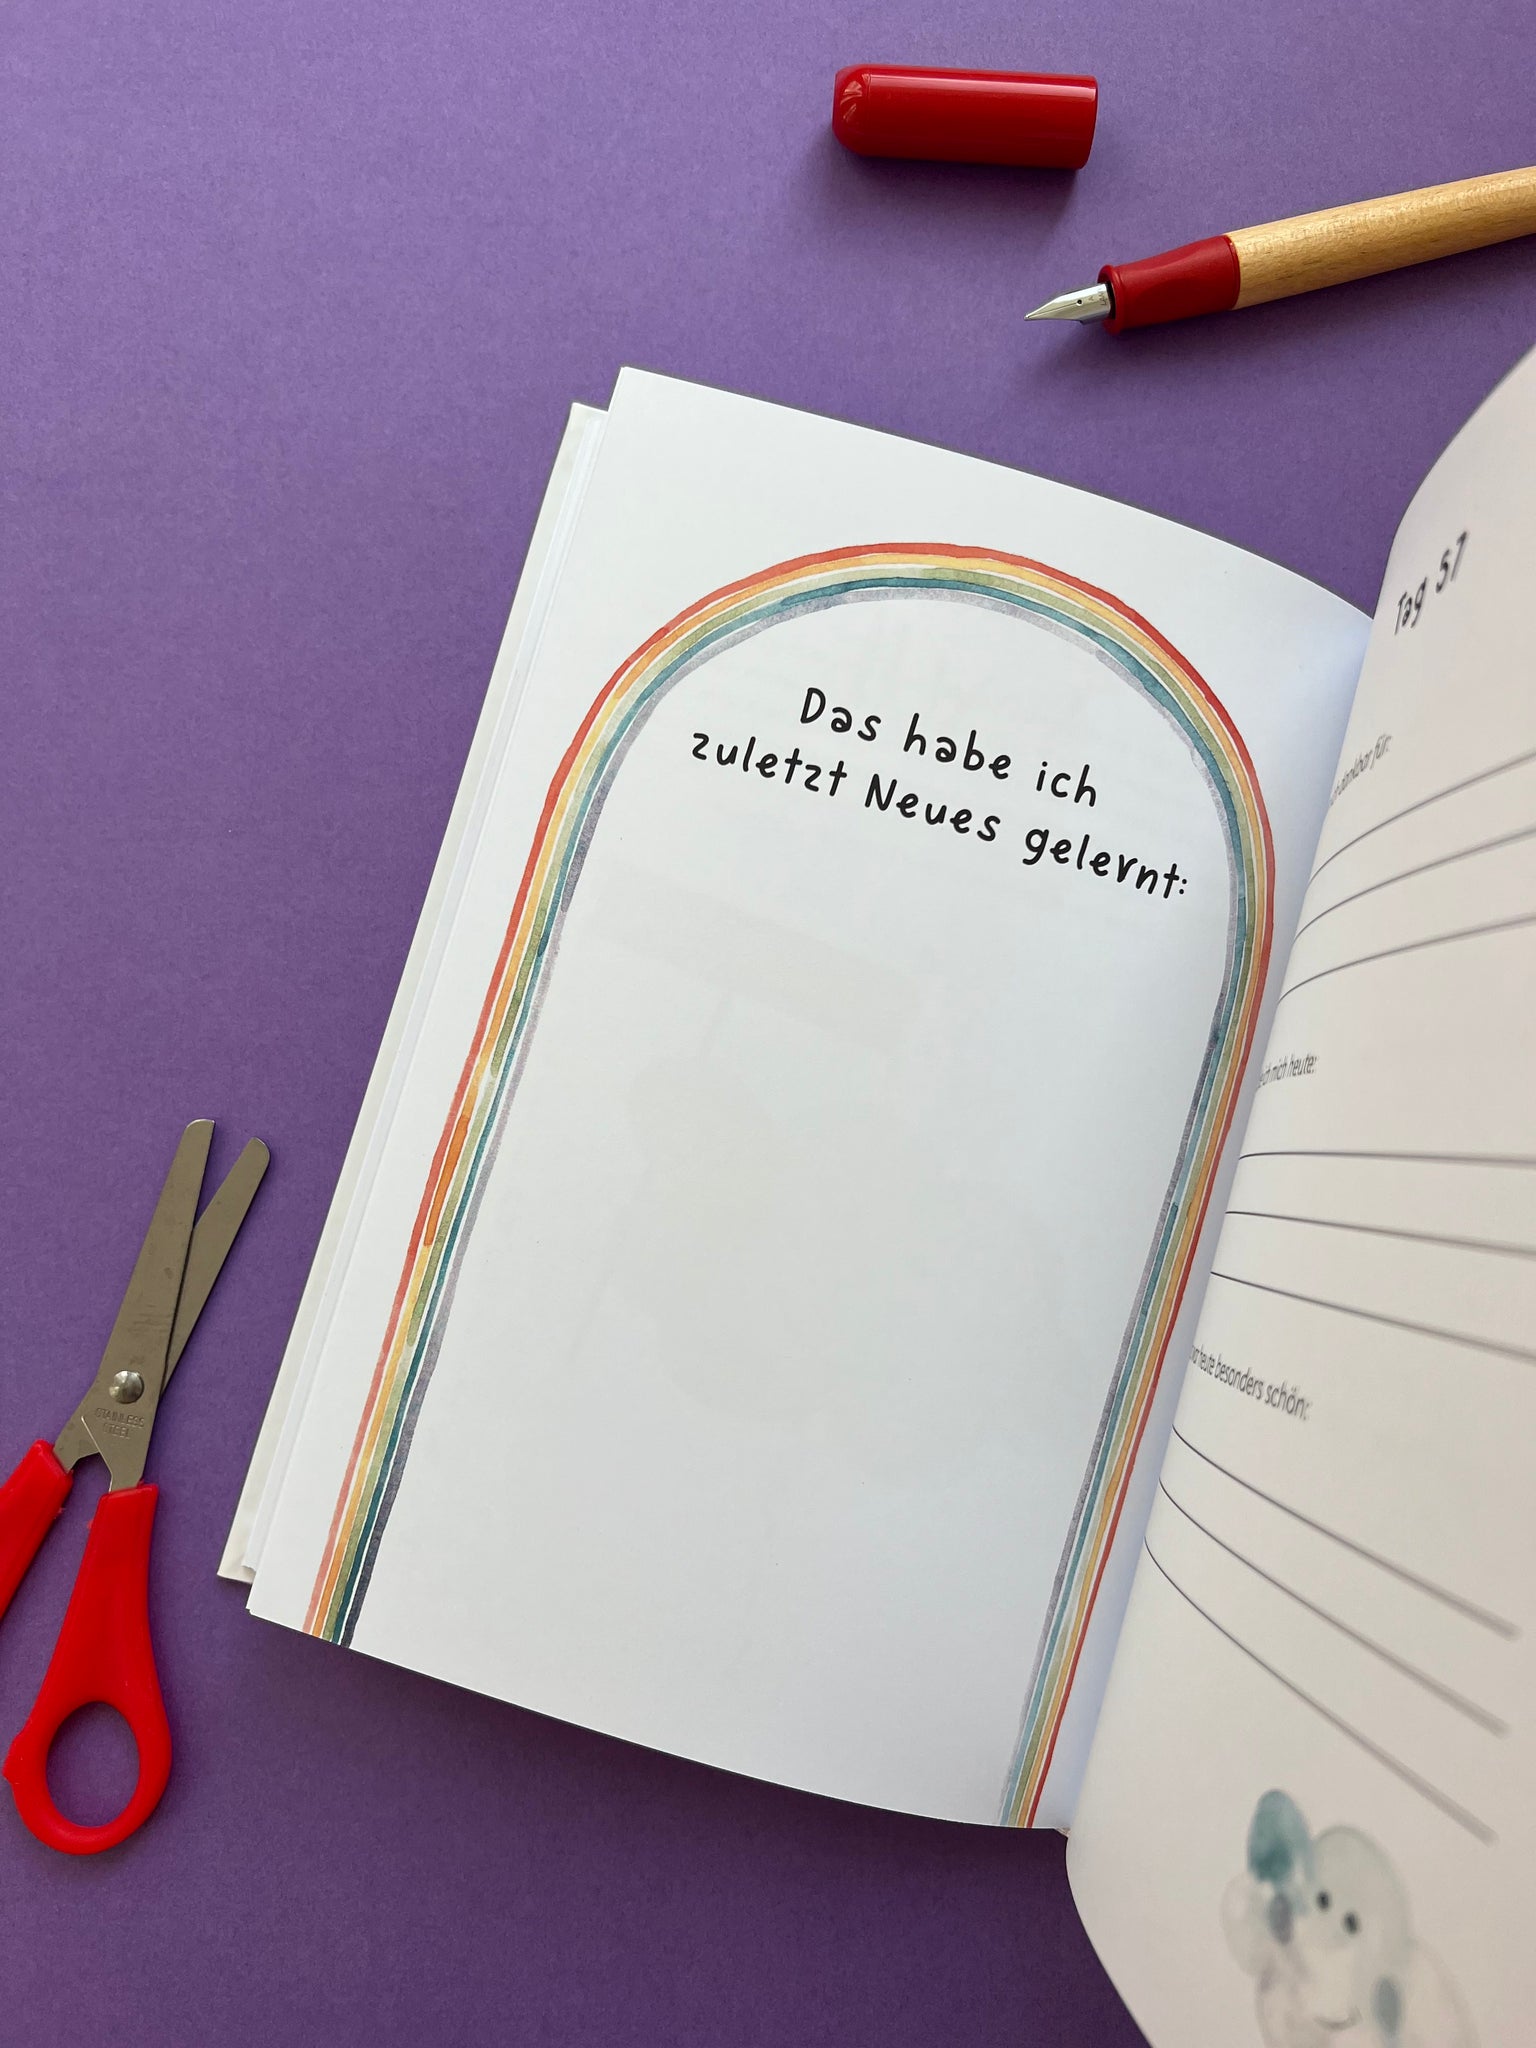 Das habe ich
zuletzt Neues gelernt:
Tag 57
dankbar für:
ich mich heute:
heute besonders schön:
STAINLESS
STEEL